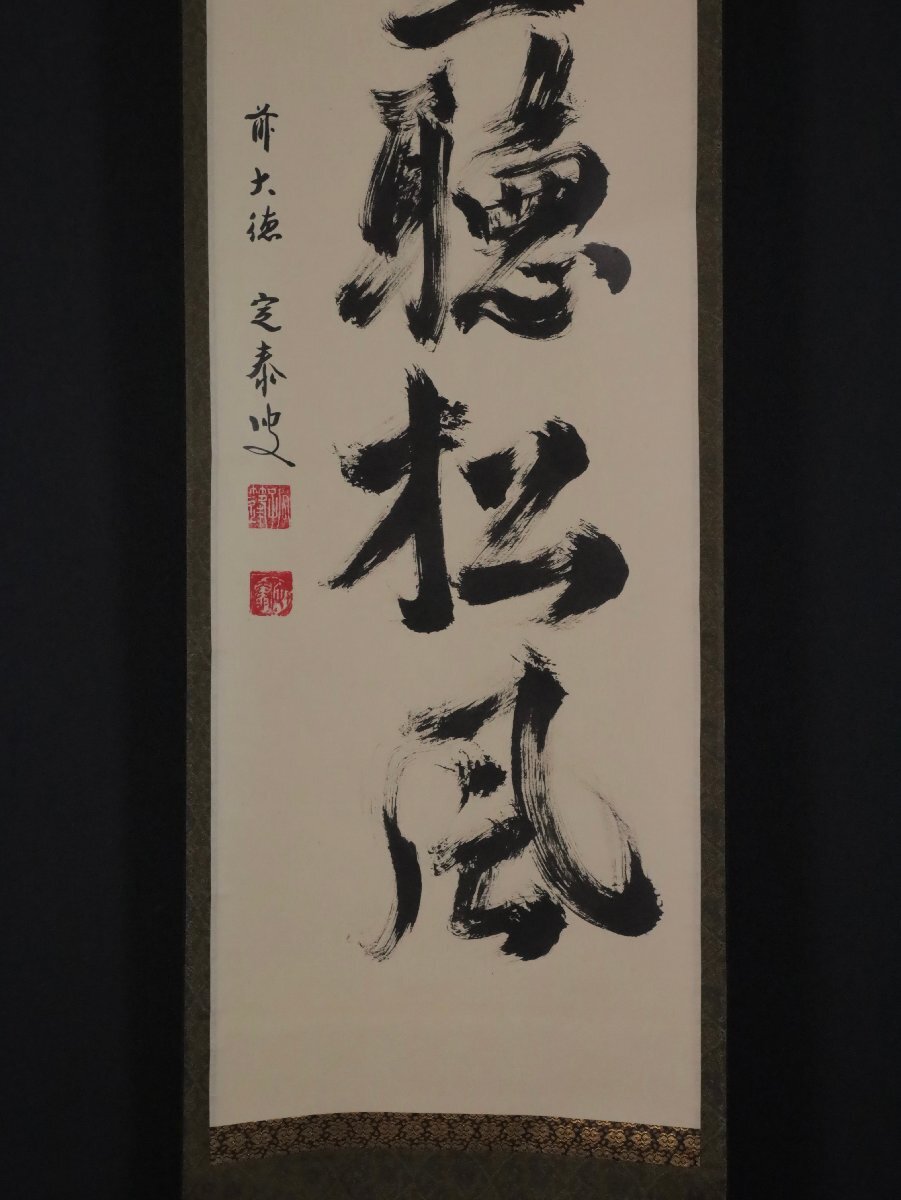 聴松風
前大徳 定泰叟